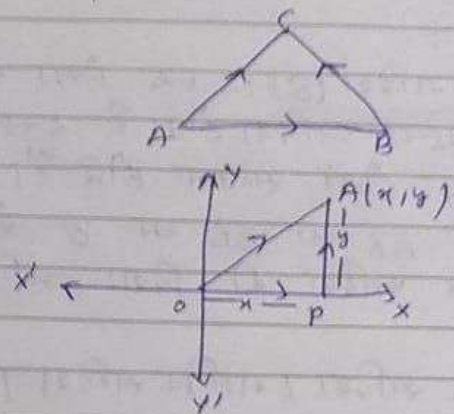 C
A B
Y
A(x, y)
y
X' O x P X
Y'